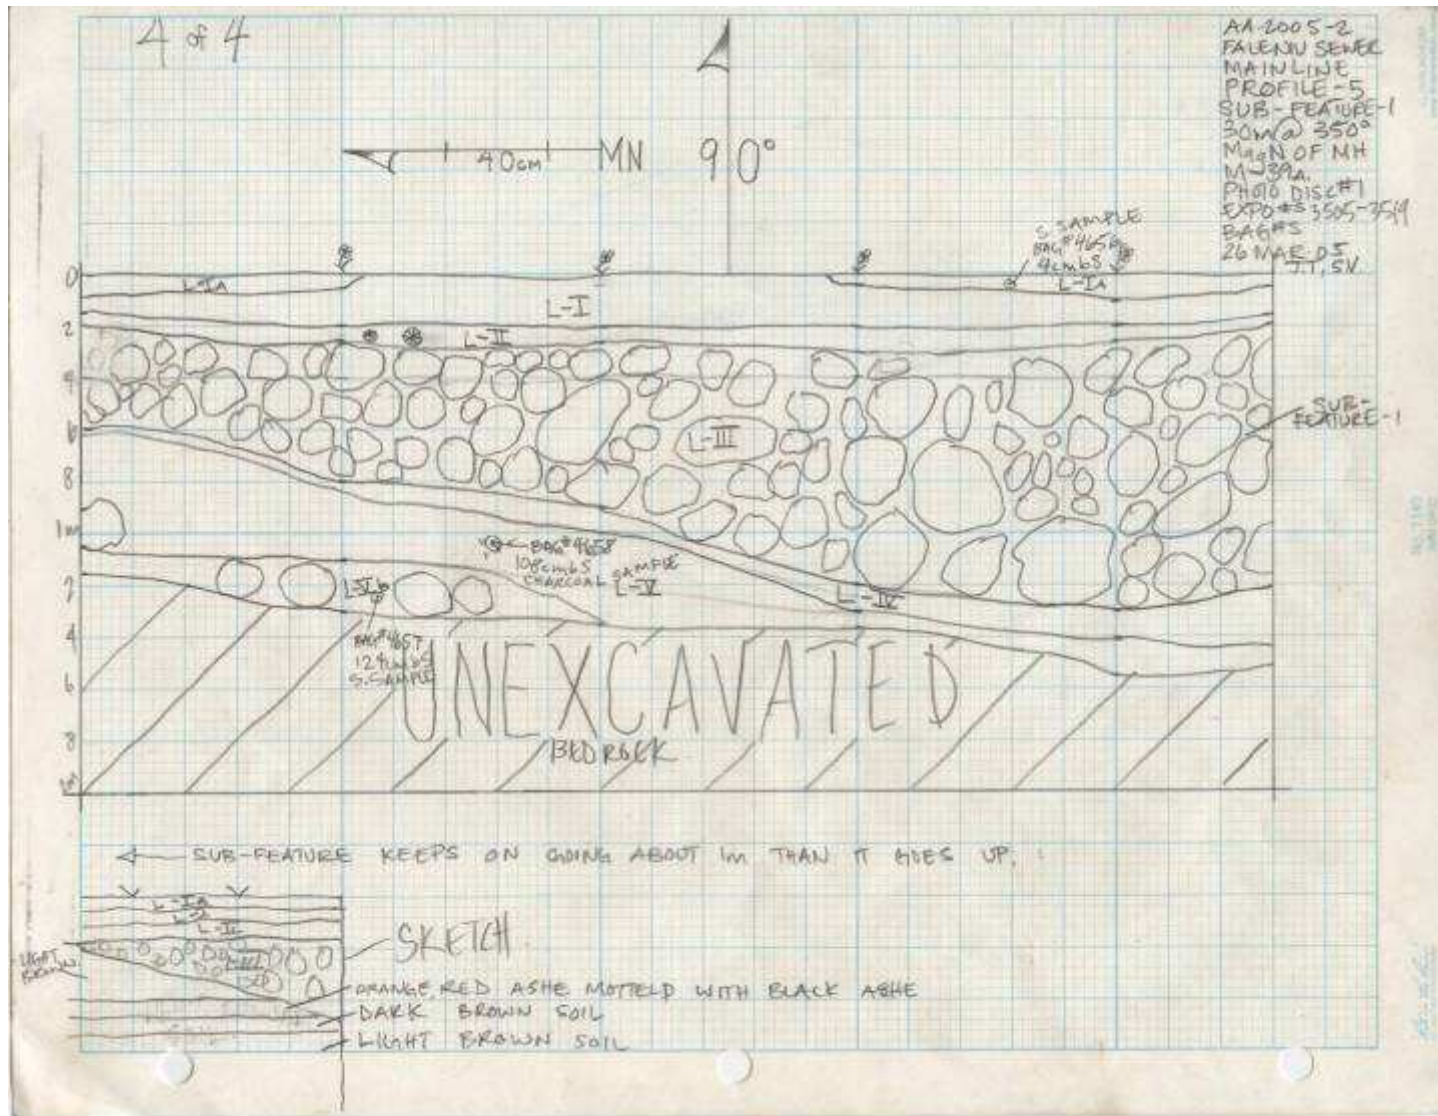 4 of 4
AA-2005-2
FALENIU SEWER
MAINLINE
PROFILE-5
SUB-FEATURE-1
30m@ 350°
MagN OF MH
M-39A.
PHOTO DISC#1
EXPO #S 3505-3519
BAG#S
26 MAR 05
40cm
MN
90°
S. SAMPLE
BAG#4656
4cmbS
0
L-IA
L-IA
L-I
2
L-II
4
SUB-
FEATURE-1
6
L-III
8
1m
BAG#4658
108cmbS
CHARCOAL SAMPLE
L-V
2
L-Vb
L-IV
4
BAG#4657
124cmbS
S. SAMPLE
UNEXCAVATED
6
8
BEDROCK
SUB-FEATURE KEEPS ON GOING ABOUT 1m THAN IT GOES UP.
L-IA
L-I
L-II
SKETCH
LIGHT
BROWN
L-III
ORANGE, RED ASHE MOTTELD WITH BLACK ASHE
DARK BROWN SOIL
LIGHT BROWN SOIL